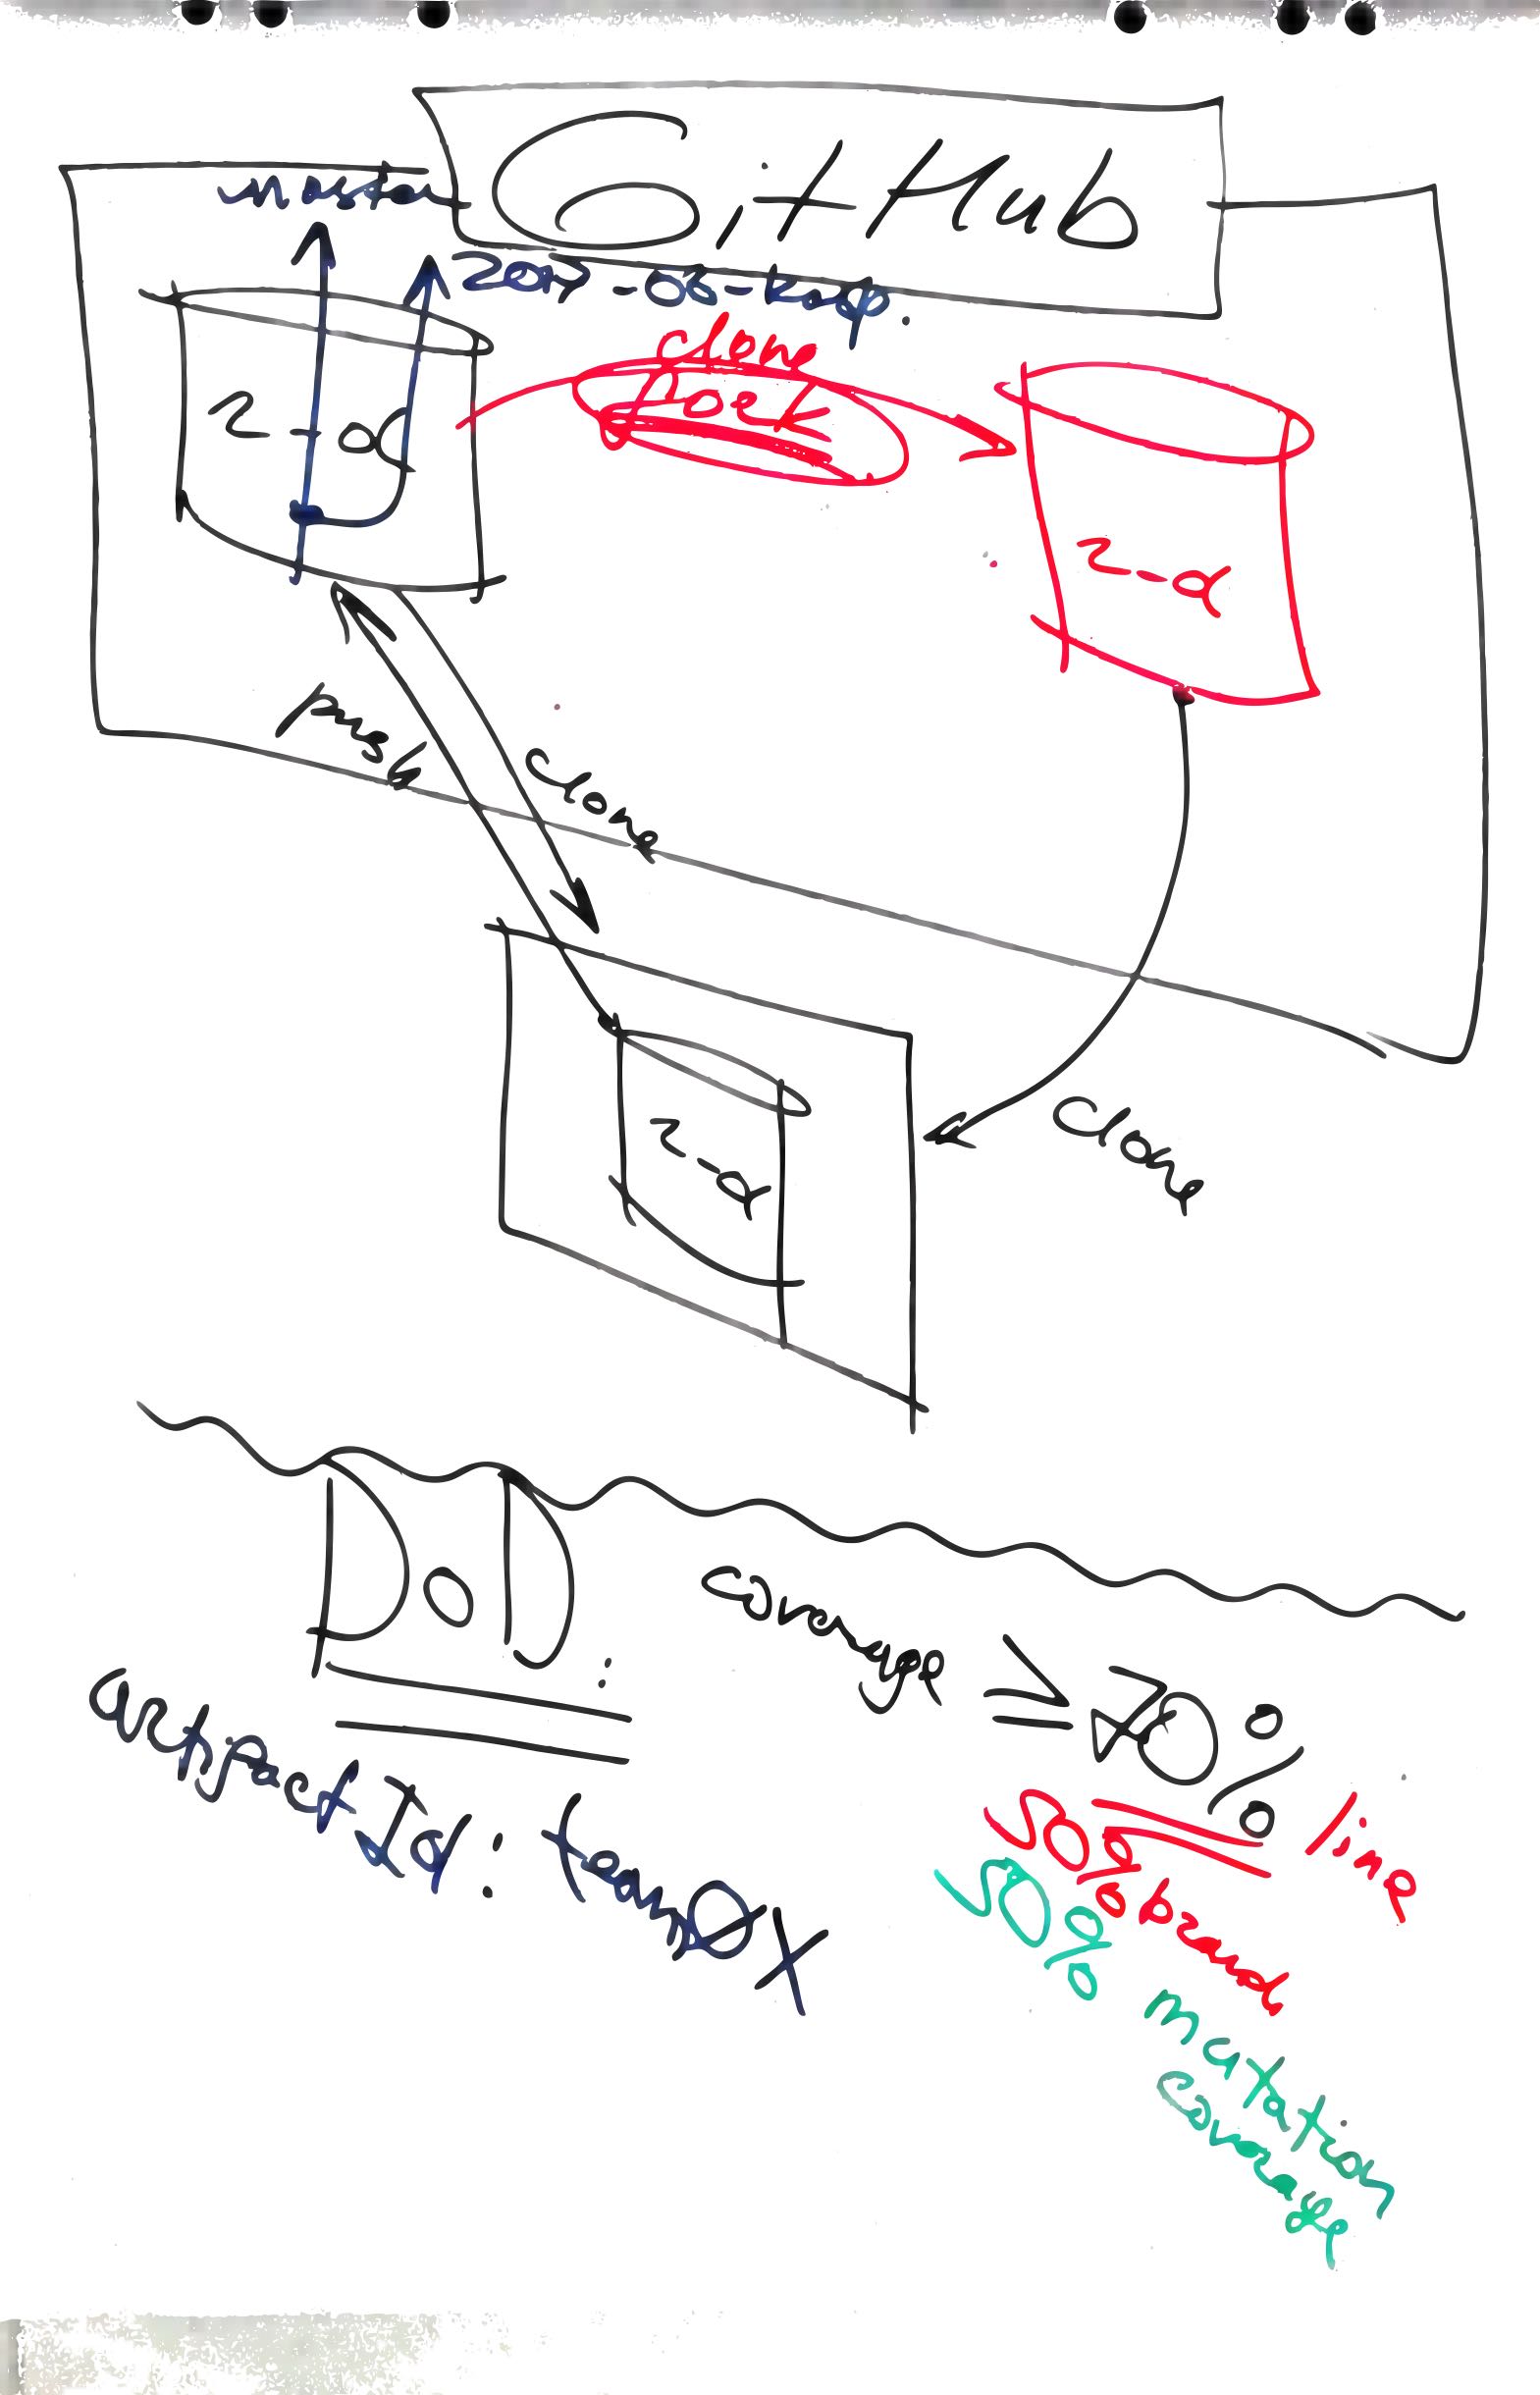 GitHub
master
clone
fork
2-a
2-a
push
clone
2-a
clone
DoD:
coverage ≥ 70% line
50% branch
50% mutation
coverage
artifactId: teamØX